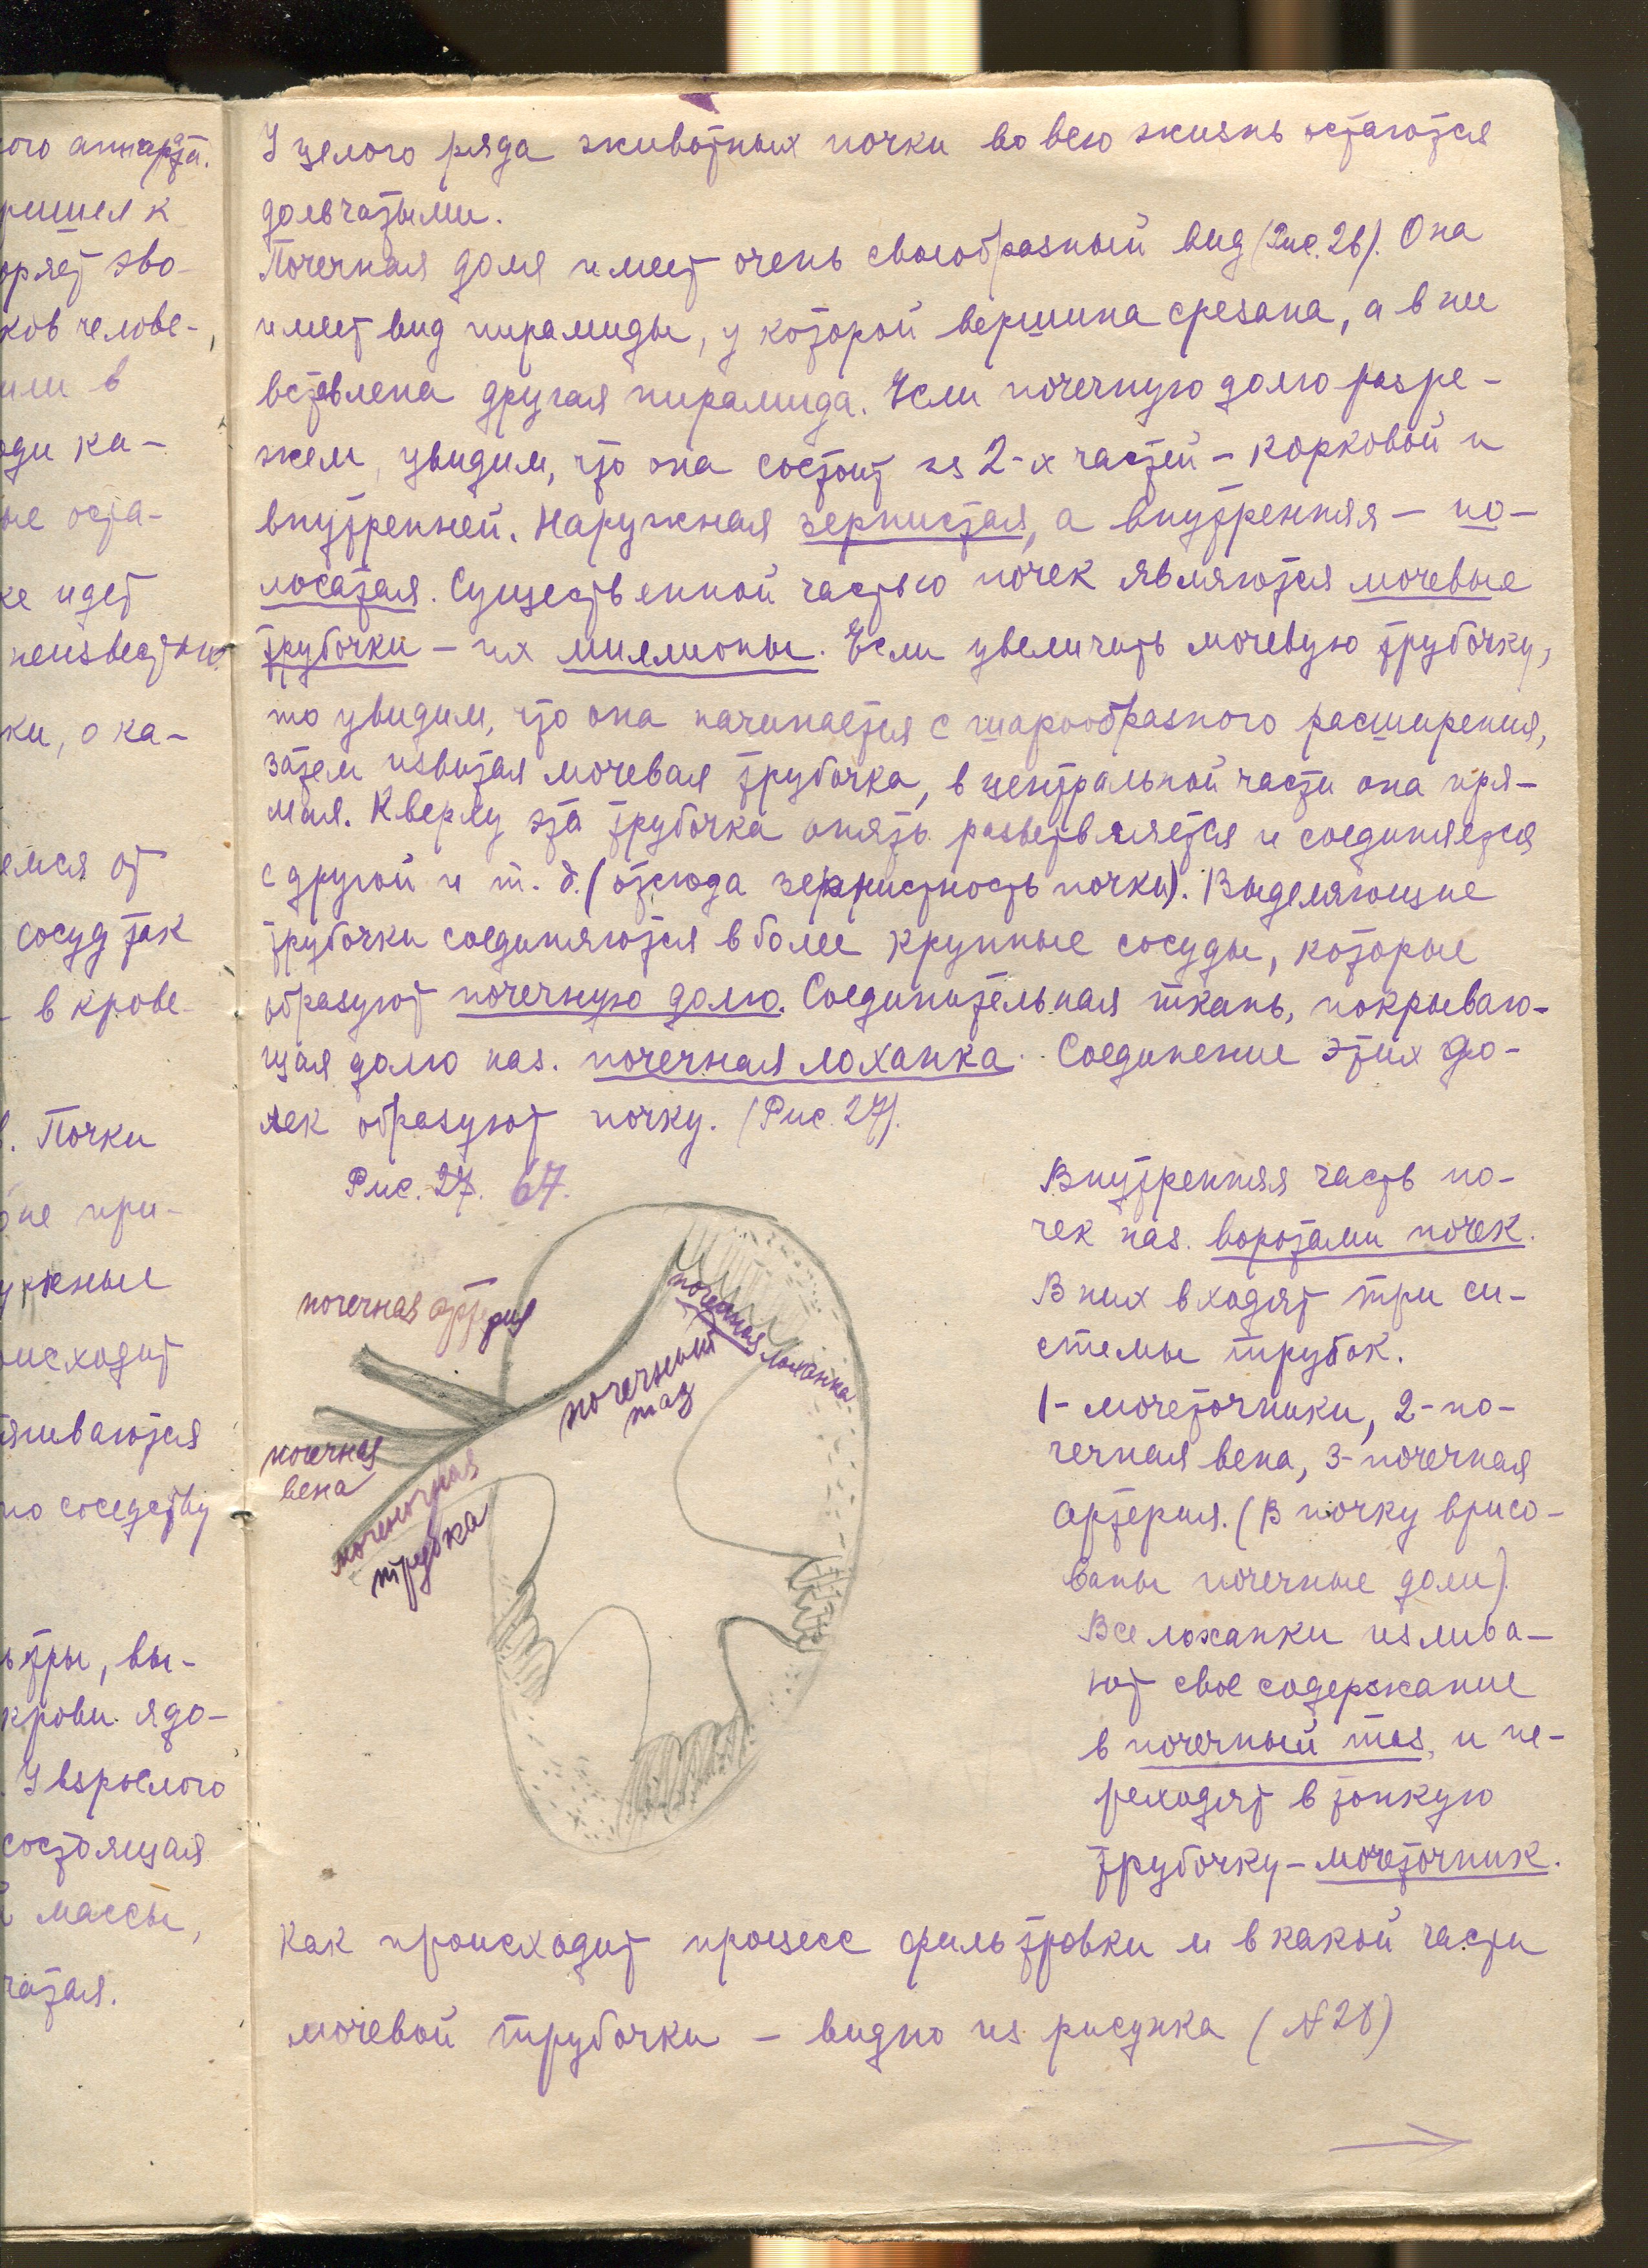 ого аппарата.
ришел к
орят эво-
ков челове-,
или в
оди ка-
ые оста-
же идет
неизвестны
ки, о ка-
емся от
сосуд так
- в крове-
. Почки
ое при-
ужные
оисходит
ягиваются
по соседству
ьтры, вы-
крови ядо-
. У взрослого
состоящая
й массы,
чатая.
У целого ряда животных почки во всю жизнь остаются
дольчатыми.
Почечная доля имеет очень своеобразный вид (Рис. 26). Она
имеет вид пирамиды, у которой вершина срезана, а в нее
вставлена другая пирамида. Если почечную долю разре-
жем, увидим, что она состоит из 2-х частей – корковой и
внутренней. Наружная зернистая, а внутренняя – по-
лосатая. Существенной частью почек являются мочевые
трубочки – их миллионы. Если увеличить мочевую трубочку,
то увидим, что она начинается с шарообразного расширения,
затем извитая мочевая трубочка, в центральной части она пря-
мая. Кверху эта трубочка опять разветвляется и соединяется
с другой и т. д. (отсюда зернистность почки). Выделяющие
трубочки соединяются в более крупные сосуды, которые
образуют почечную долю. Соединительная ткань, покрываю-
щая долю наз. почечная лоханка. Соединение этих до-
лек образуют почку. (Рис. 27).
Рис. 27. 67.
почечная артерия
почечная лоханка
почечный
таз
почечная
вена
мочеточная
трубка
Внутренняя часть по-
чек наз. воротами почек.
В них входят три си-
стемы трубок.
1- мочеточники, 2- по-
чечная вена, 3- почечная
артерия. (В почку врисо-
ваны почечные доли).
Все лоханки излива-
ют свое содержание
в почечный таз, и пе-
реходят в тонкую
трубочку – мочеточник.
Как происходит процесс фильтровки и в какой части
мочевой трубочки – видно из рисунка (№28)